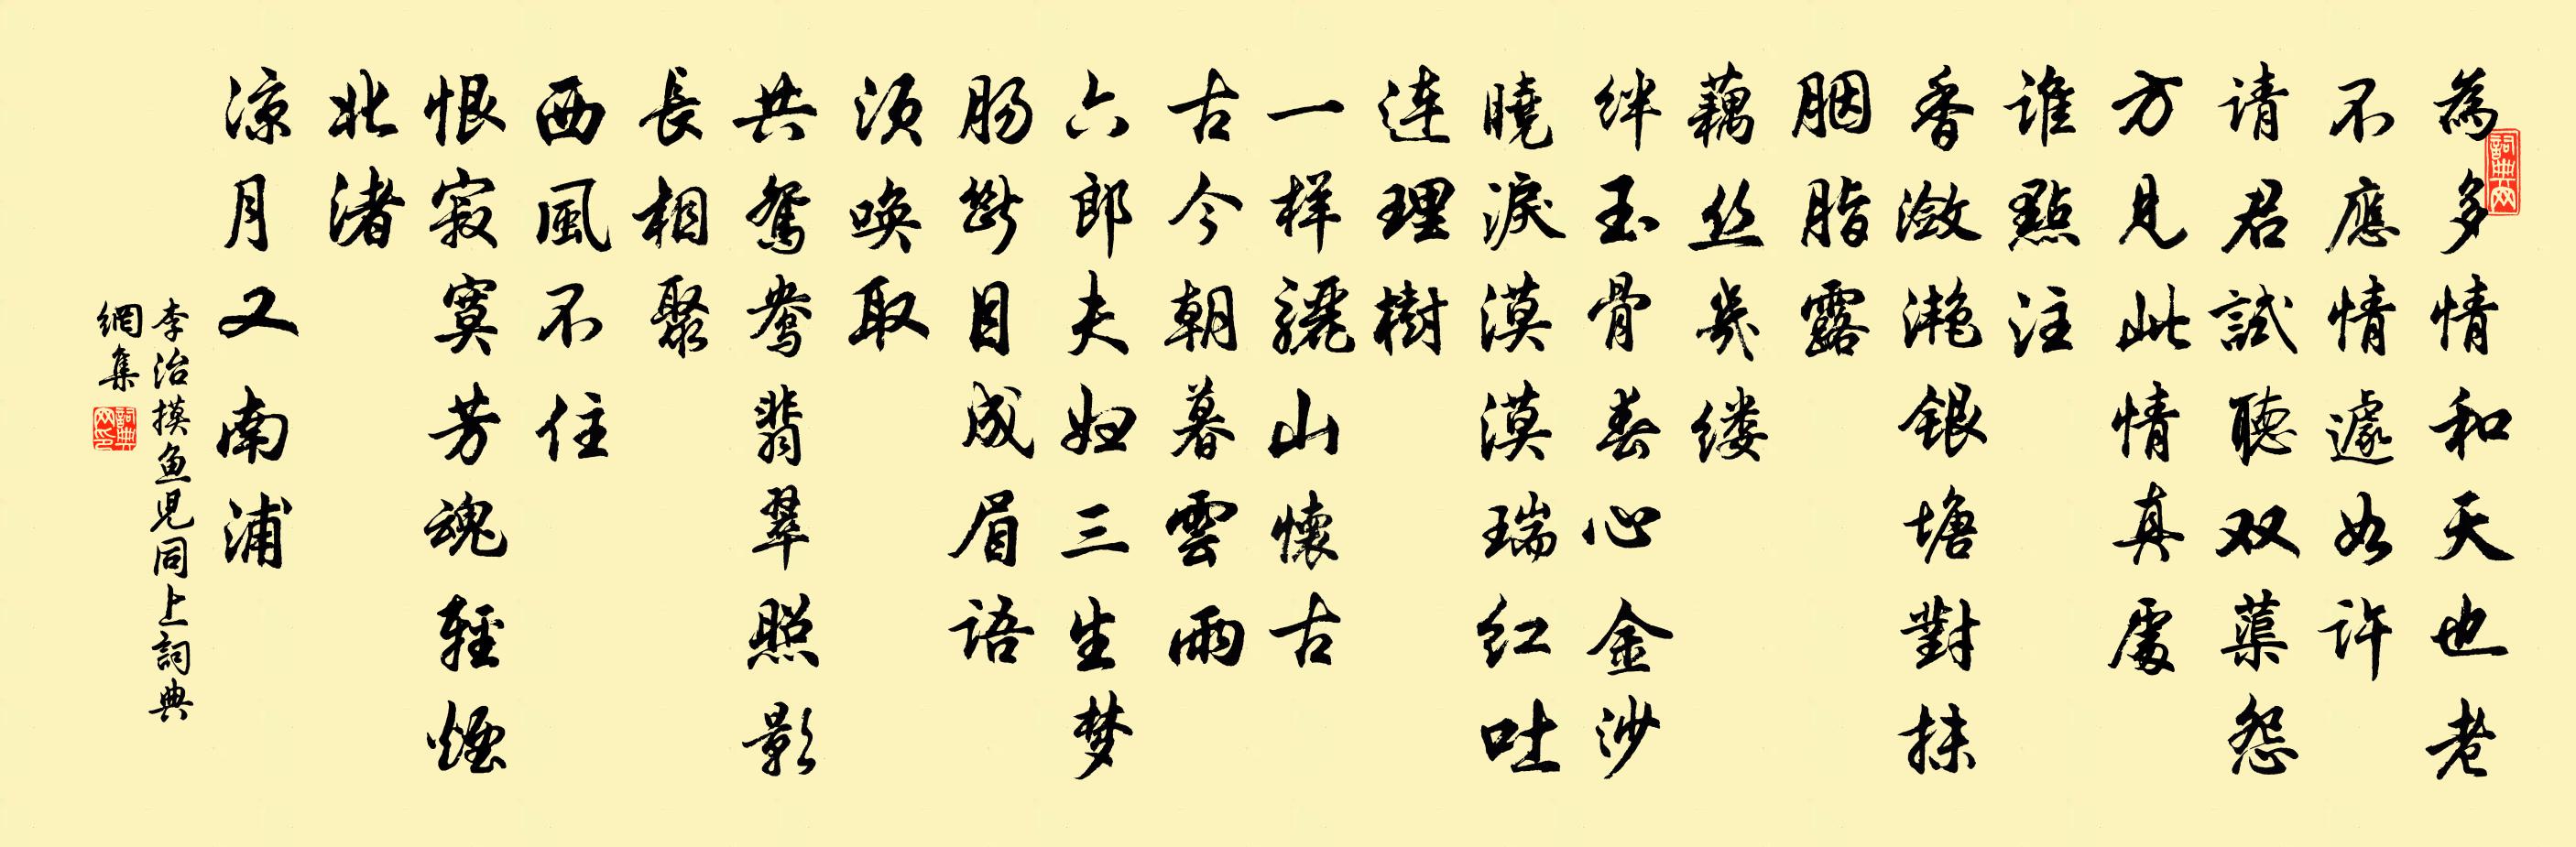 為多情和天也老
不應情遽如许
请君試聽双蕖怨
方見此情真處
谁點注
香潋滟銀塘對抹
胭脂露
藕丝幾缕
绊玉骨春心金沙
曉淚漠漠瑞红吐
連理樹
一样驪山懷古
古今朝暮雲雨
六郎夫妇三生梦
肠斷目成眉语
须唤取
共鴛鴦翡翠照影
長相聚
西風不住
恨寂寞芳魂輕煙
北渚
凉月又南浦
李治摸鱼児同上詞典
網集
詞典网
詞典网印